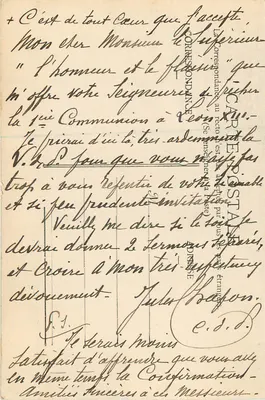 + C'est de tout Cœur que j'accepte,
Mon cher Monsieur le Supérieur
"l'honneur et le plaisir" que
m'offre votre Seigneurie, de prêcher
la 1ère Communion à
Je prierai d'ici là, très ardemment la
pour que vous n'ayez pas
trop à vous repentir de votre
et si peu prudente invitation.
Veuillez me dire si le soir je
devrai donner 2 Sermons
et Croire à mon très respectueux
dévouement. Jules Lafon.
P.S.
Je serais moins
satisfait d'apprendre que vous avez
en même temps la Confirmation.
Amitiés sincères à ces Messieurs.
CARTE POSTALE
CORRESPONDANCE